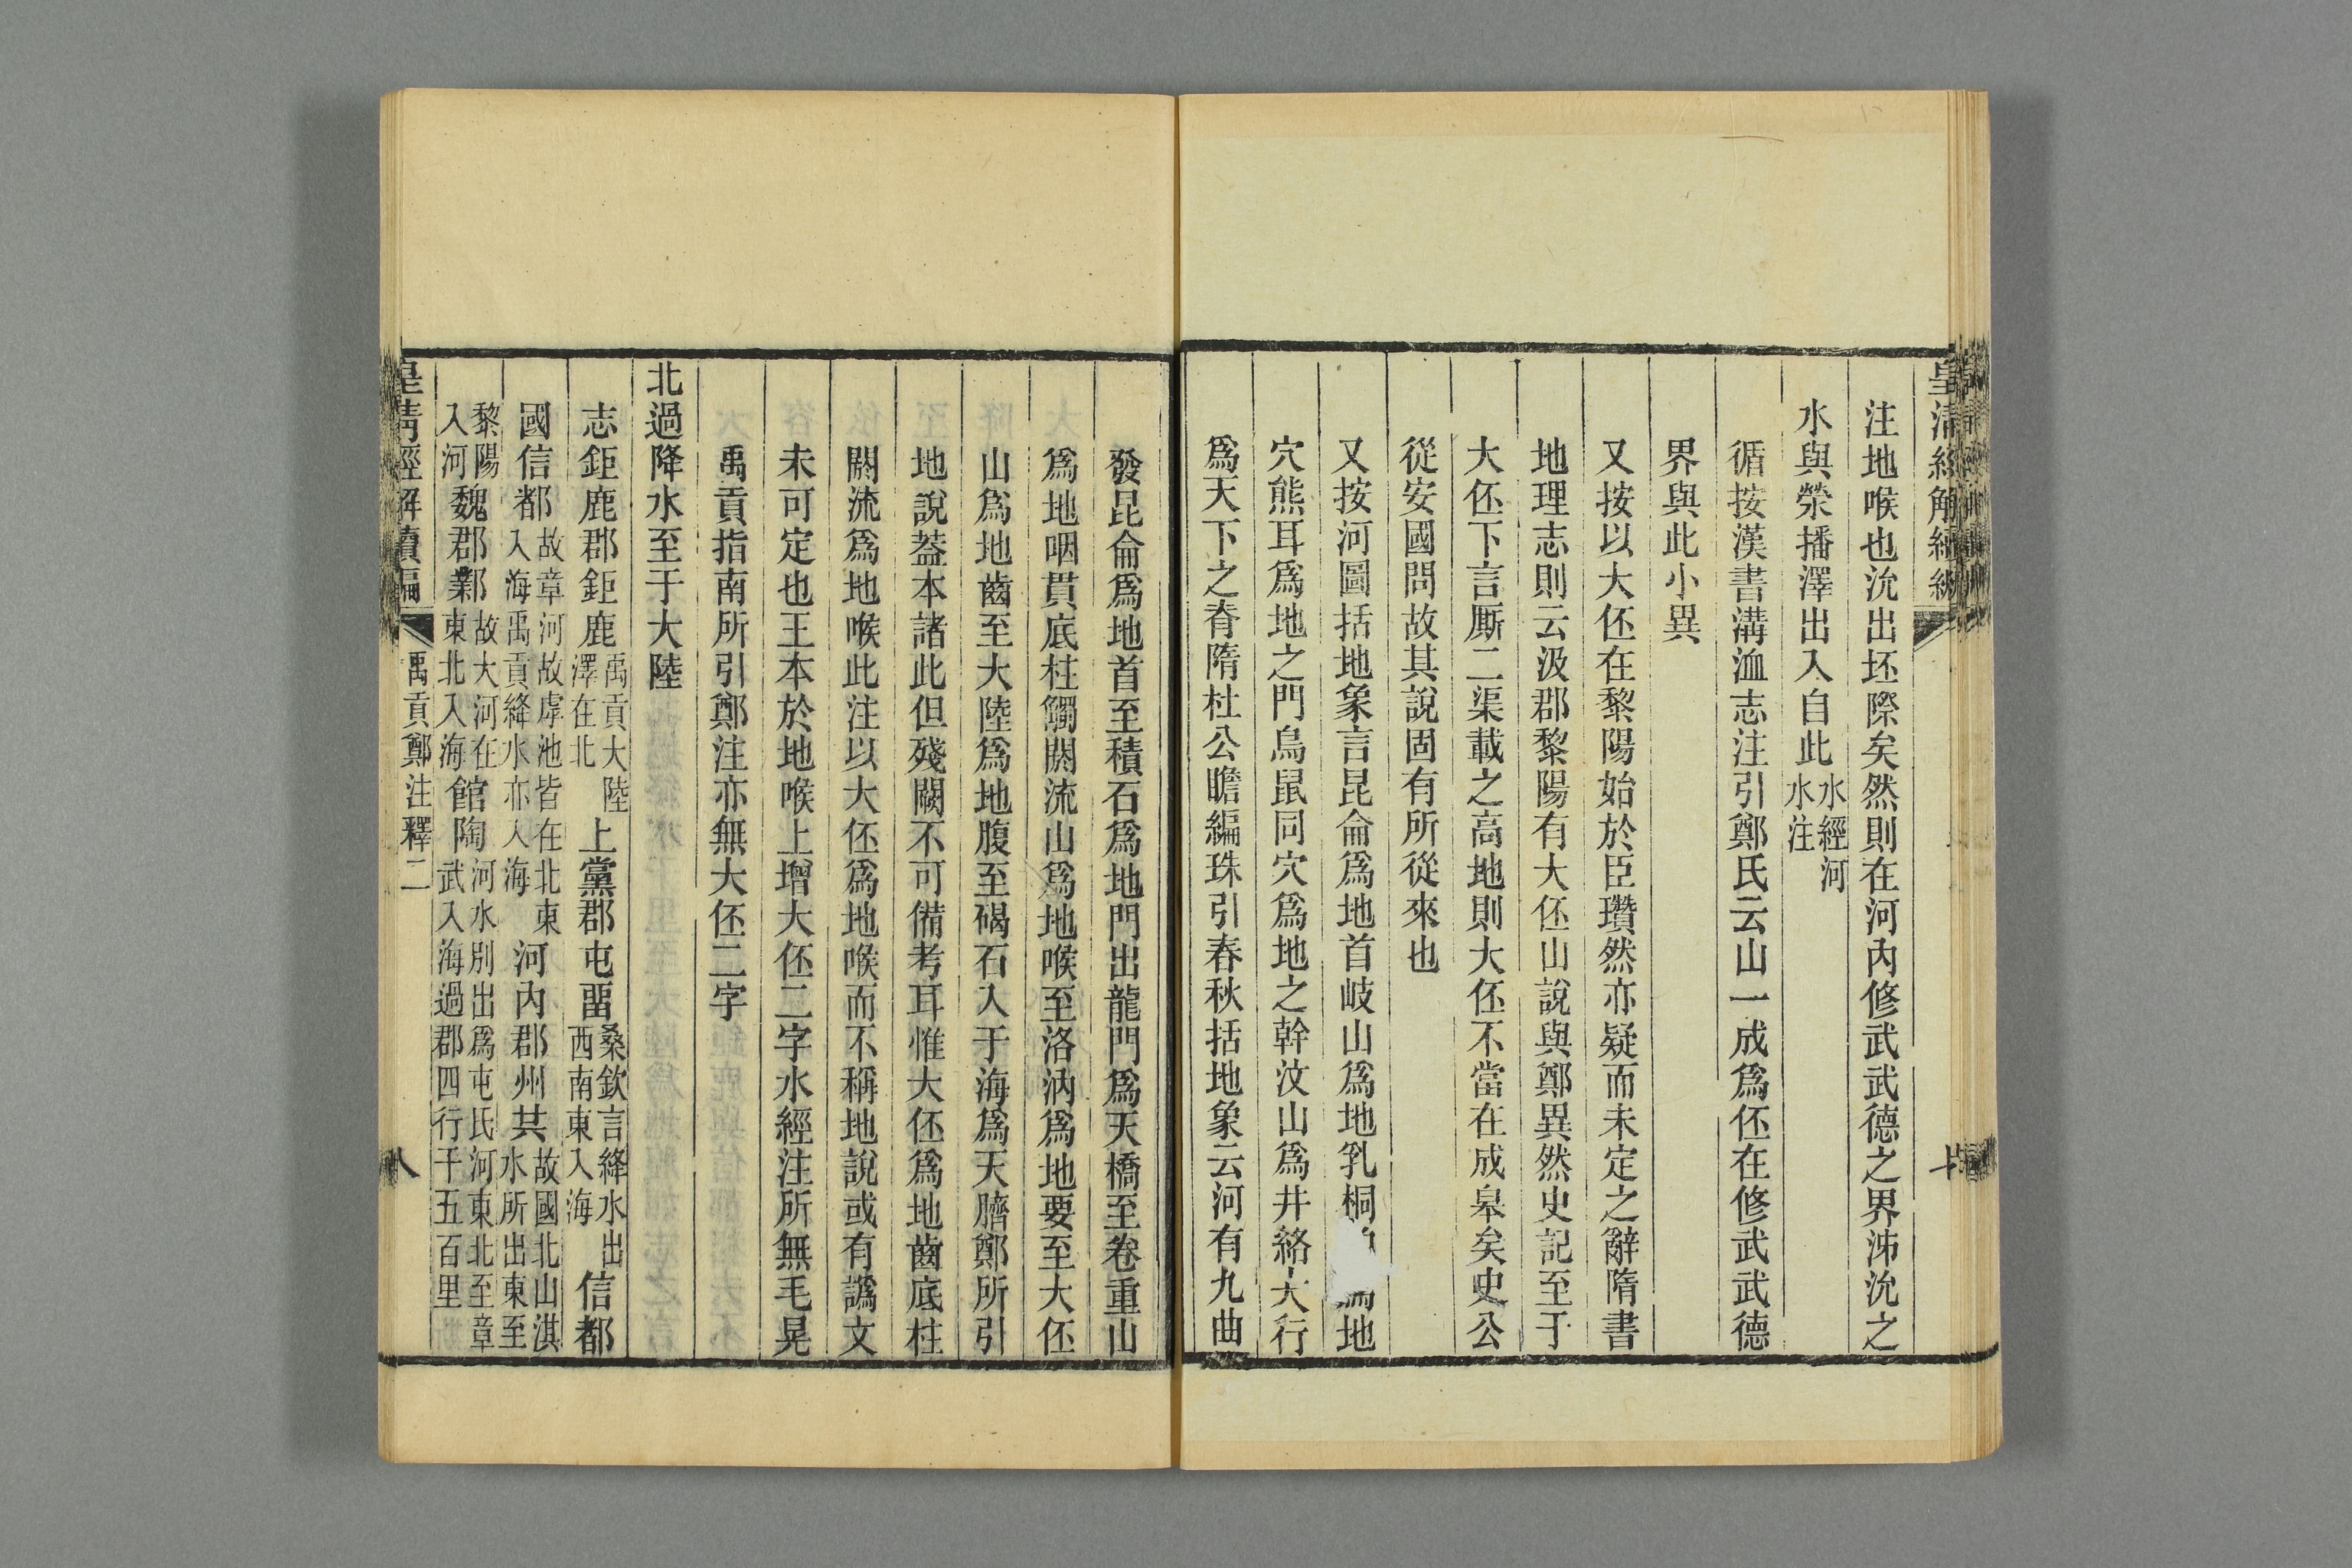 注地喉也沇出坯際矣然則在河內修武武德之界泲沇之
水與滎播澤出入自此水經河水注
循按漢書溝洫志注引鄭氏云山一成爲伾在修武武德
界與此小異
又按以大伾在黎陽始於臣瓚然亦疑而未定之辭隋書
地理志則云汲郡黎陽有大伾山說與鄭異然史記至于
大伾下言厮二渠載之高地則大伾不當在成皋矣史公
從安國問故其說固有所從來也
又按河圖括地象言昆侖爲地首岐山爲地乳桐爲地
穴熊耳爲地之門鳥鼠同穴爲地之幹汶山爲井絡大行
爲天下之脊隋杜公瞻編珠引春秋括地象云河有九曲
發昆侖爲地首至積石爲地門出龍門爲天橋至卷重山
爲地咽貫底柱觸閼流山爲地喉至洛汭爲地要至大伾
山爲地齒至大陸爲地腹至碣石入于海爲天臍鄭所引
地說葢本諸此但殘闕不可備考耳惟大伾爲地齒底柱
閼流爲地喉此注以大伾爲地喉而不稱地說或有譌文
未可定也王本於地喉上增大伾二字水經注所無毛晃
禹貢指南所引鄭注亦無大伾二字
北過降水至于大陸
志鉅鹿郡鉅鹿禹貢大陸澤在北上黨郡屯畱桑欽言絳水出西南東入海信都
國信都故章河故虖池皆在北東入海禹貢絳水亦入海河內郡州共故國北山淇水所出東至
黎陽入河魏郡鄴故大河在東北入海館陶河水別出爲屯氏河東北至章武入海過郡四行千五百里
皇清經解續編
禹貢鄭注釋二
八